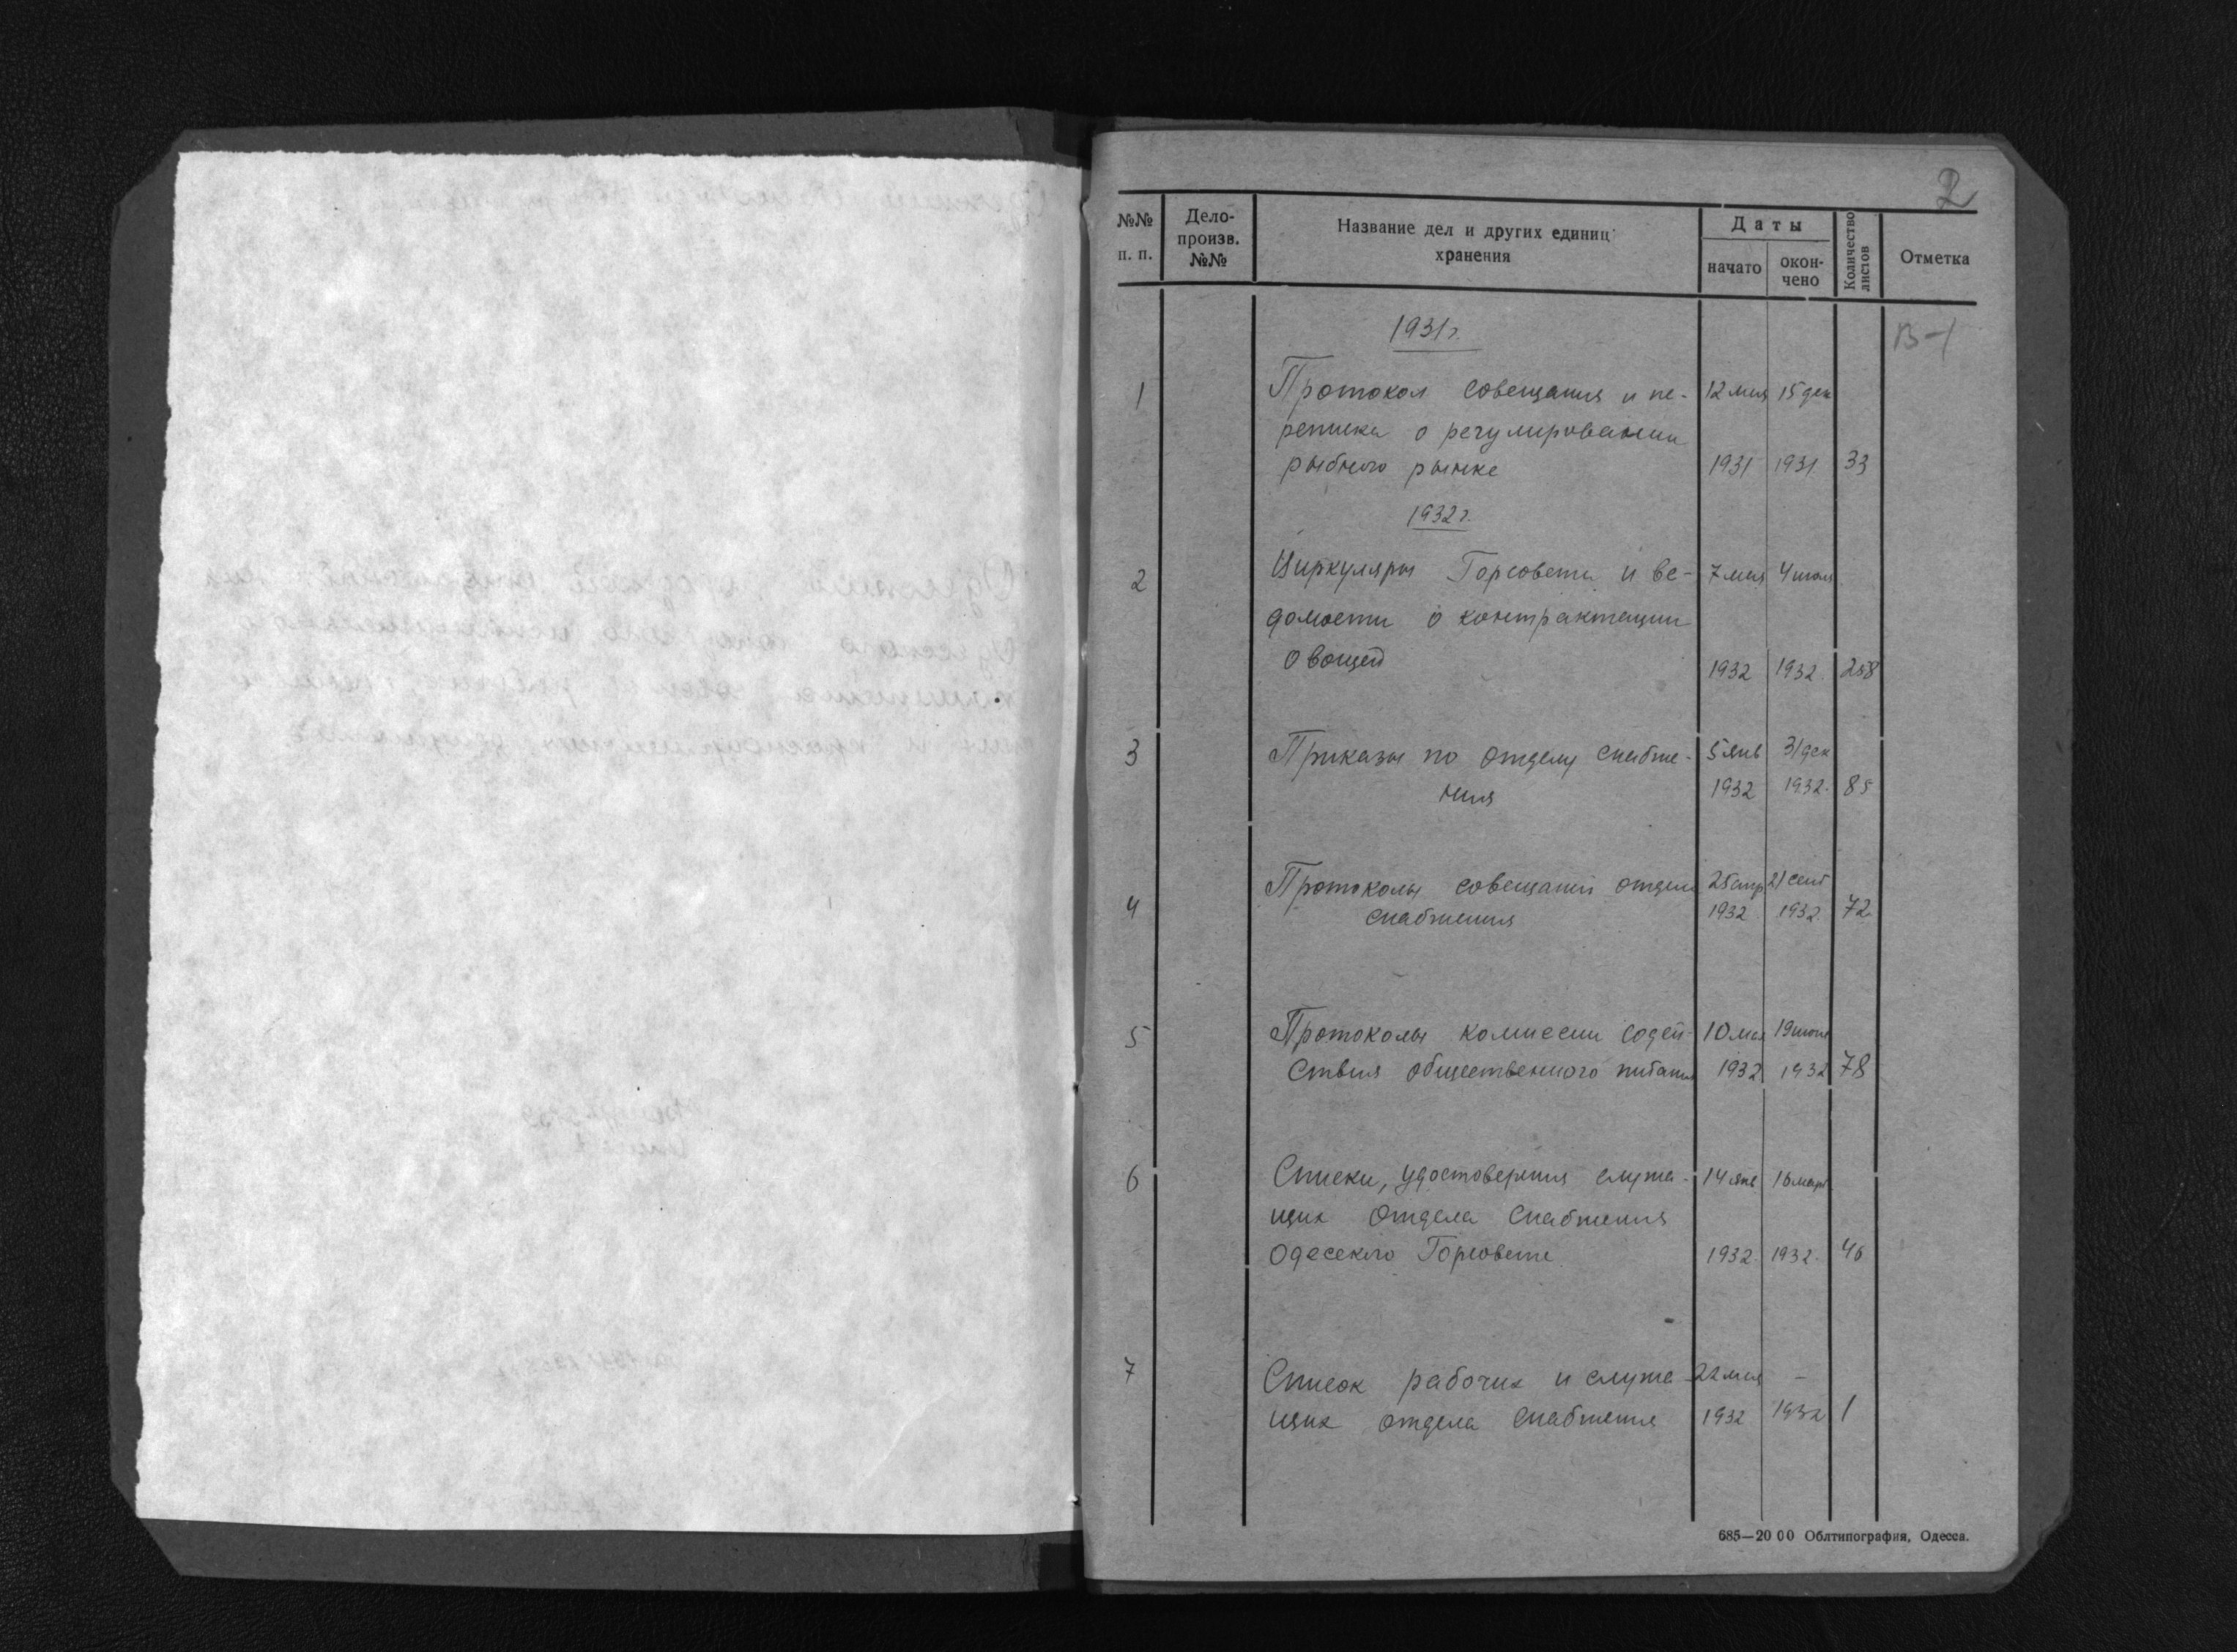 2
№№ п. п.
Дело-произв. №№
Название дел и других единиц хранения
Даты
начато
окон-чено
Количество листов
Отметка
1931 г.
В-1
1 Протокол совещания и пе- 12 мая 15 дек
реписка о регулировании
рыбного рынка 1931 1931 33
1932 г.
2 Циркуляры Горсовета и ве- 7 мая 4 июля
домости о контрактации
овощей 1932 1932. 258
3 Приказы по отделу снабже- 5 янв 31 дек
ния 1932 1932. 85
4 Протоколы совещаний отдела 25 апр 21 сент
снабжения 1932 1932. 72
5 Протоколы комиссии содей- 10 мая 19 июня
ствия общественного питания 1932 1932 78
6 Списки, удостоверения служа- 14 янв 16 март
щих отдела снабжения
Одесского Горсовета 1932. 1932. 46
7 Список рабочих и служа- 22 мая -
щих отдела снабжения 1932 1932 1
685—2000 Облтипография, Одесса.